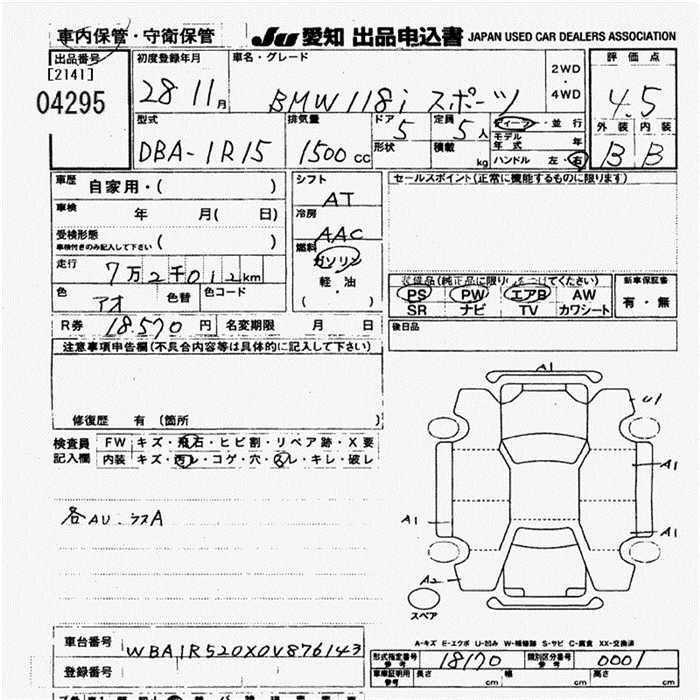 車内保管・守衛保管
JU 愛知 出品申込書 JAPAN USED CAR DEALERS ASSOCIATION
出品番号
[2141]
04295
初度登録年月
28 11月
車名・グレード
BMW 118i スポーツ
2WD
4WD
評価点
4.5
外装 内装
B B
型式
DBA-1R15
排気量
1500 CC
ドア 5
形状
定員 5人
積載 kg
ディーラー・並行
モデル年式 年
ハンドル 左・右
車歴 自家用・( )
車検 年 月( 日)
受検形態
車検付きのみ記入して下さい ( )
走行 7万2千012km
色 アオ 色替 色コード
シフト
AT
冷房
AAC
燃料
ガソリン
軽・油
・
( )
セールスポイント(正常に機能するものに限ります)
装備品(純正品に限り○をつけてください)
PS PW エアB AW
SR ナビ TV カワシート
新車保証書
有・無
R券 18,570円 名変期限 月 日
後日品
注意事項申告欄(不具合内容等は具体的に記入して下さい)
修復歴 有 (箇所 )
検査員 FW キズ・飛石・ヒビ割・リペア跡・X要
記入欄 内装 キズ・汚レ・コゲ・穴・スレ・キレ・破レ
各AU ラスA
A1
U1
A1
A1
A1
A2
スペア
A-キズ E-エクボ U-凹み W-補修跡 S-サビ C-腐食 XX-交換済
車台番号 WBA1R520X0V876143
登録番号
形式指定番号 参考 18170 類別区分番号 参考 0001
車庫証明用 参考 長さ cm 幅 cm 高さ cm